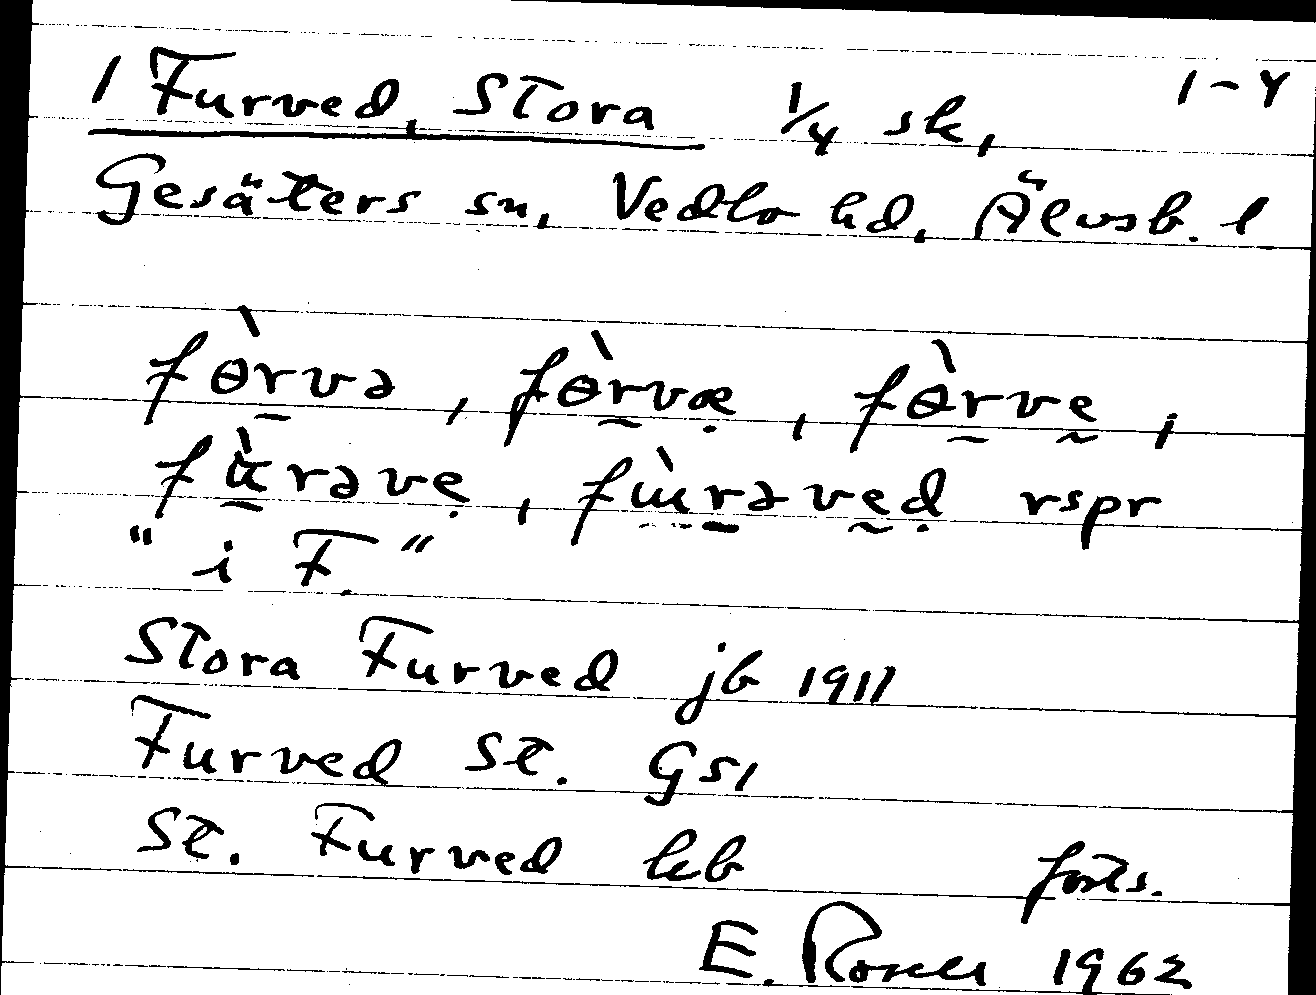 1 Furved, Stora 1/4 sk, 1-4
Gesäters sn, Vedbo hd, Älvsb. l
fɵ̀rvə, fɵ̀rvæ, fɵ̀rve,
fùrəve, fùrəved rspr
"i F."
Stora Furved jb 1911
Furved St. GS1
St. Furved kb forts.
E. 1962